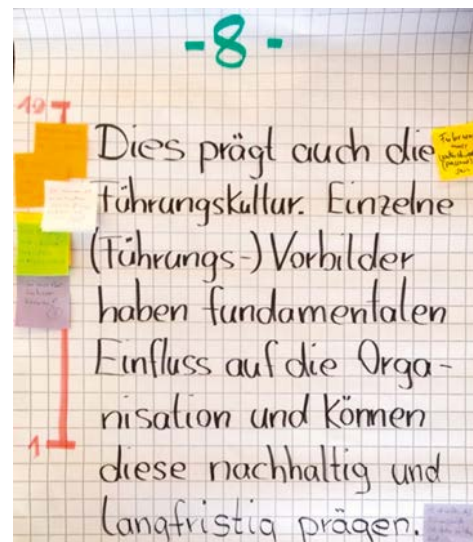 - 8 -
10
Dies prägt auch die
Führungskultur. Einzelne
(Führungs-) Vorbilder
haben fundamentalen
Einfluss auf die Orga-
nisation und können
1
diese nachhaltig und
langfristig prägen.